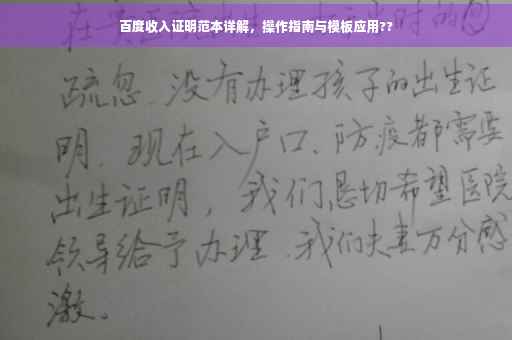 百度收入证明范本详解，操作指南与模板应用??
疏忽、没有办理孩子的出生证
明、现在入户口、防疫都需要
出生证明，我们恳切希望医院
领导给予办理、我们夫妻万分感
激。